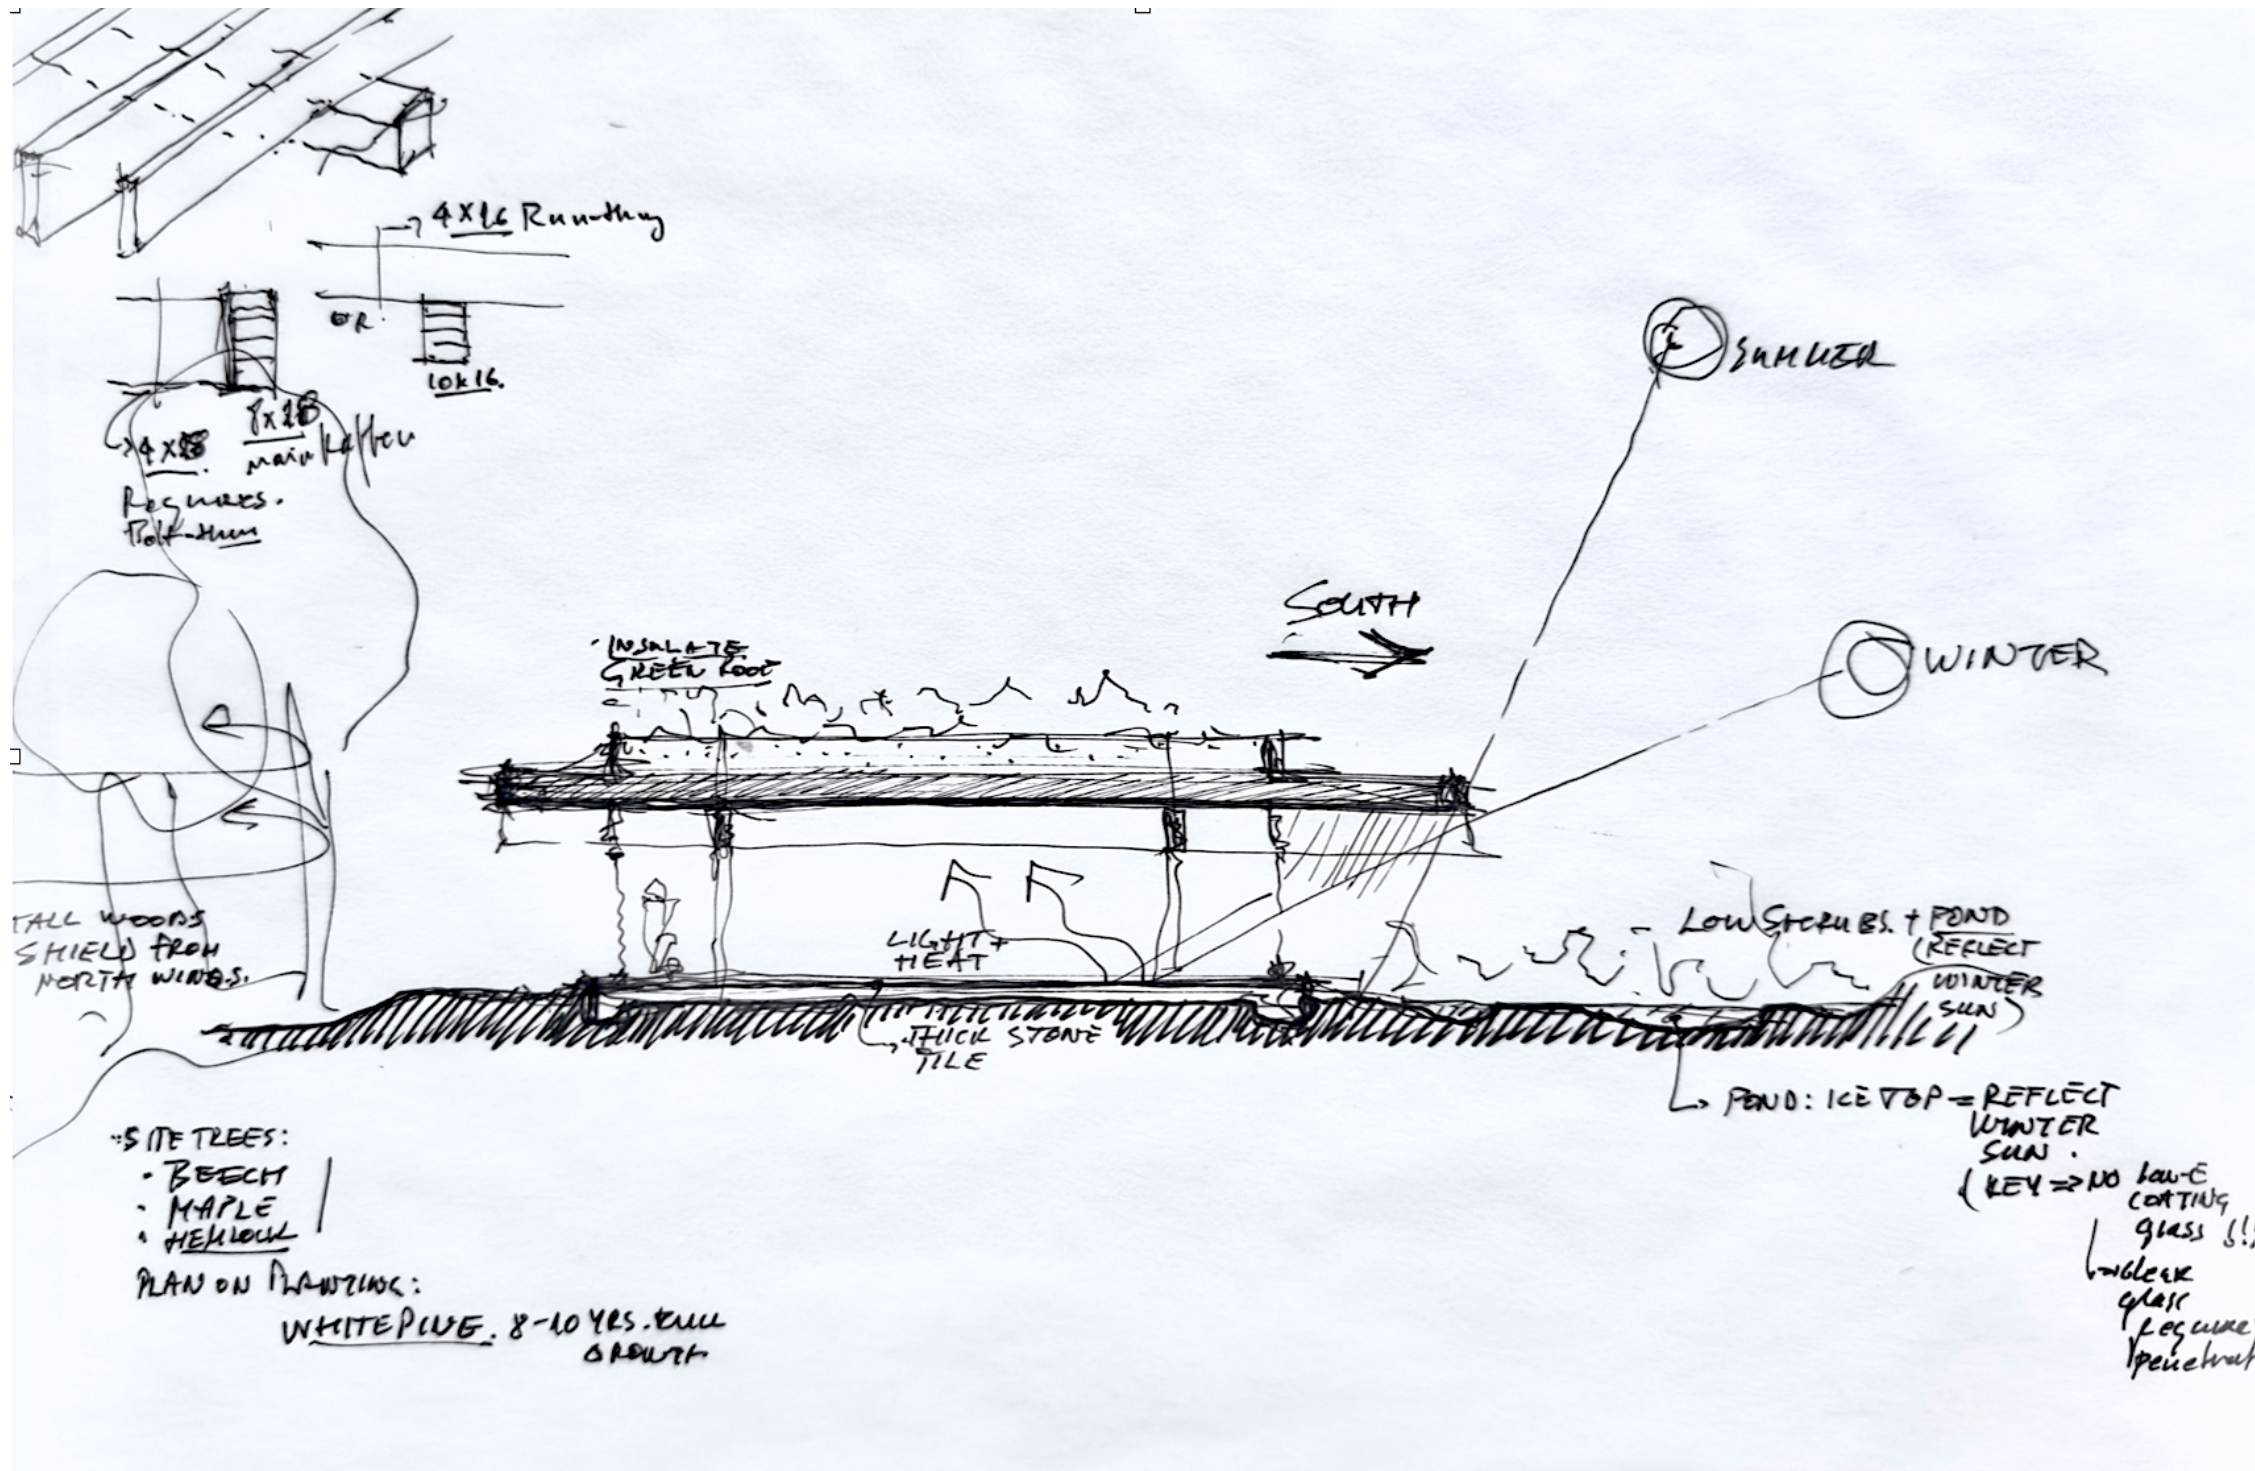 4x16 Run-thru
OR.
10x16.
4x18. 8x18
main
Requires.
Bolt-thru
SUMMER
SOUTH
WINTER
INSULATE
GREEN ROOF
TALL WOODS
SHIELD FROM
NORTH WINDS.
LIGHT +
HEAT
LOW SHRUBS. + POND
(REFLECT
WINTER
SUN)
THICK STONE
TILE
POND: ICE TOP = REFLECT
WINTER
SUN.
(KEY => NO LOW-E
COATING
glass !!!
clear
glass
SITE TREES:
• BEECH
• MAPLE
• HEMLOCK
PLAN ON PLANTING:
WHITE PINE. 8-10 YRS. FULL
GROWTH